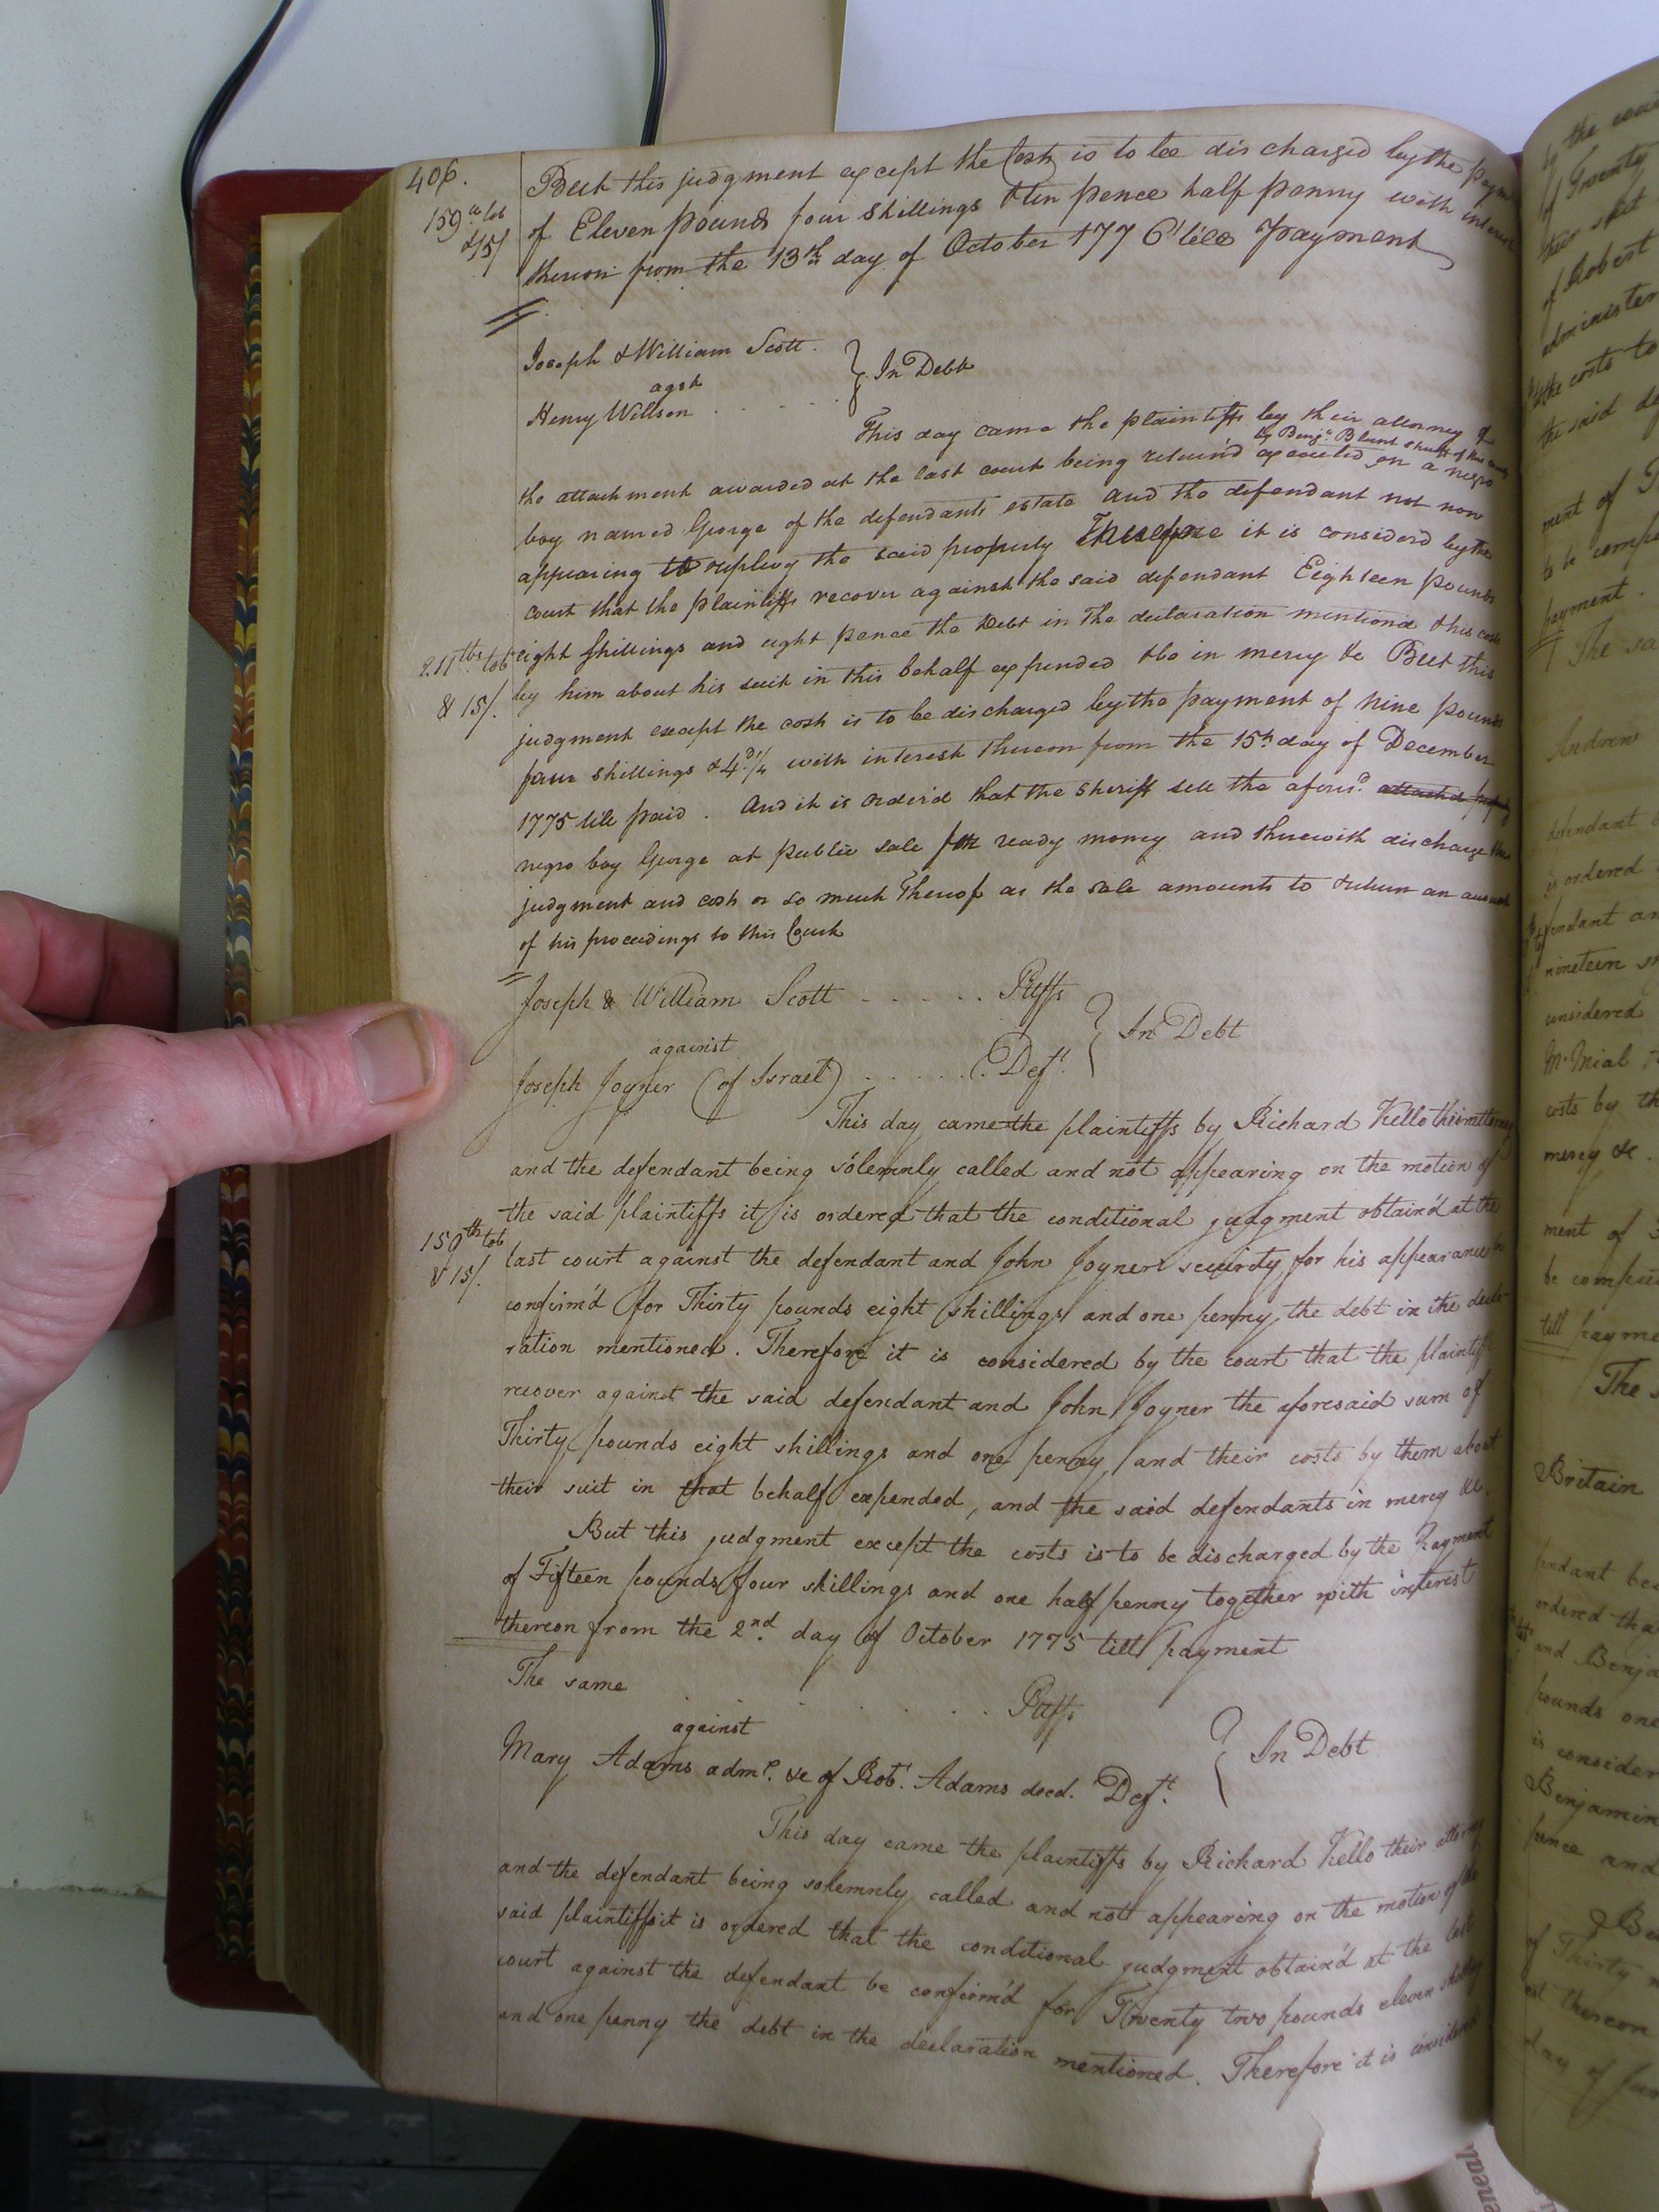 406.
But this judgment except the Costs is to be discharged by the paym
159 lb tob
& 15/
of Eleven pounds four shillings & ten pence half penny with interest
thereon from the 13th day of October 1776 till payment
Joseph & William Scott.
agst
Henry Willson . . . .
In Debt
This day came the plaintiffs by their attorney &
by Benja. Blunt sheriff of this county
the attachment awarded at the last court being return'd executed on a negro
boy named George of the defendants estate and the defendant not now
appearing to replevy the said property Therefore it is considerd by the
court that the plaintiffs recover against the said defendant Eighteen pounds
211 lbs tob
& 15/.
eight shillings and eight pence the Debt in the declaration mentiond & his costs
by him about his suit in this behalf expended & be in mercy &c But this
judgment except the costs is to be discharged by the payment of Nine pounds
four shillings & 4d 1/4 with interest thereon from the 15th day of December
1775 till paid . And it is orderd that the Sheriff sell the aforesd. attach'd property
negro boy George at public sale for ready money and therewith discharge the
judgment and costs or so much Thereof as the sale amounts to & return an account
of his proceedings to this Court
Joseph & William Scott . . . . . Pltffs
against
Joseph Joyner (of Israel) . . . . . Deft.
In Debt
This day came the plaintiffs by Richard Kello their attorney
and the defendant being solemnly called and not appearing on the motion of
the said plaintiffs it is ordered that the conditional judgment obtain'd at the
150 lb tob
& 15/.
last court against the defendant and John Joyner security for his appearance be
confirm'd for Thirty pounds eight shillings and one penny, the debt in the decla-
ration mentioned. Therefore it is considered by the court that the plaintiffs
recover against the said defendant and John Joyner the aforesaid sum of
Thirty pounds eight shillings and one penny, and their costs by them about
their suit in that behalf expended, and the said defendants in mercy &c.
But this judgment except the costs is to be discharged by the Payment
of Fifteen pounds four shillings and one half penny together with interest
thereon from the 2nd. day of October 1775 till payment
The same . . . . . Pltffs
against
Mary Adams admx. &c of Robt. Adams decd. Deft.
In Debt
This day came the plaintiffs by Richard Kello their attorney
and the defendant being solemnly called and not appearing on the motion of the
said plaintiffs it is ordered that the conditional judgment obtain'd at the last
court against the defendant be confirm'd for Twenty two pounds eleven shillings
and one penny the debt in the declaration mentioned. Therefore it is considered
by the
of Twenty
their suit
of Robert
administer
the costs to
the said de
ment of
to be compu
payment.
The sa
Andrew
defendant
is ordered
defendant an
nineteen
considered
costs by th
mercy &c.
ment of
till payme
The
Britain
ordered tha
and Benja
pounds one
is consider
Benjamin
pence and
of Thirty
thereon
day of